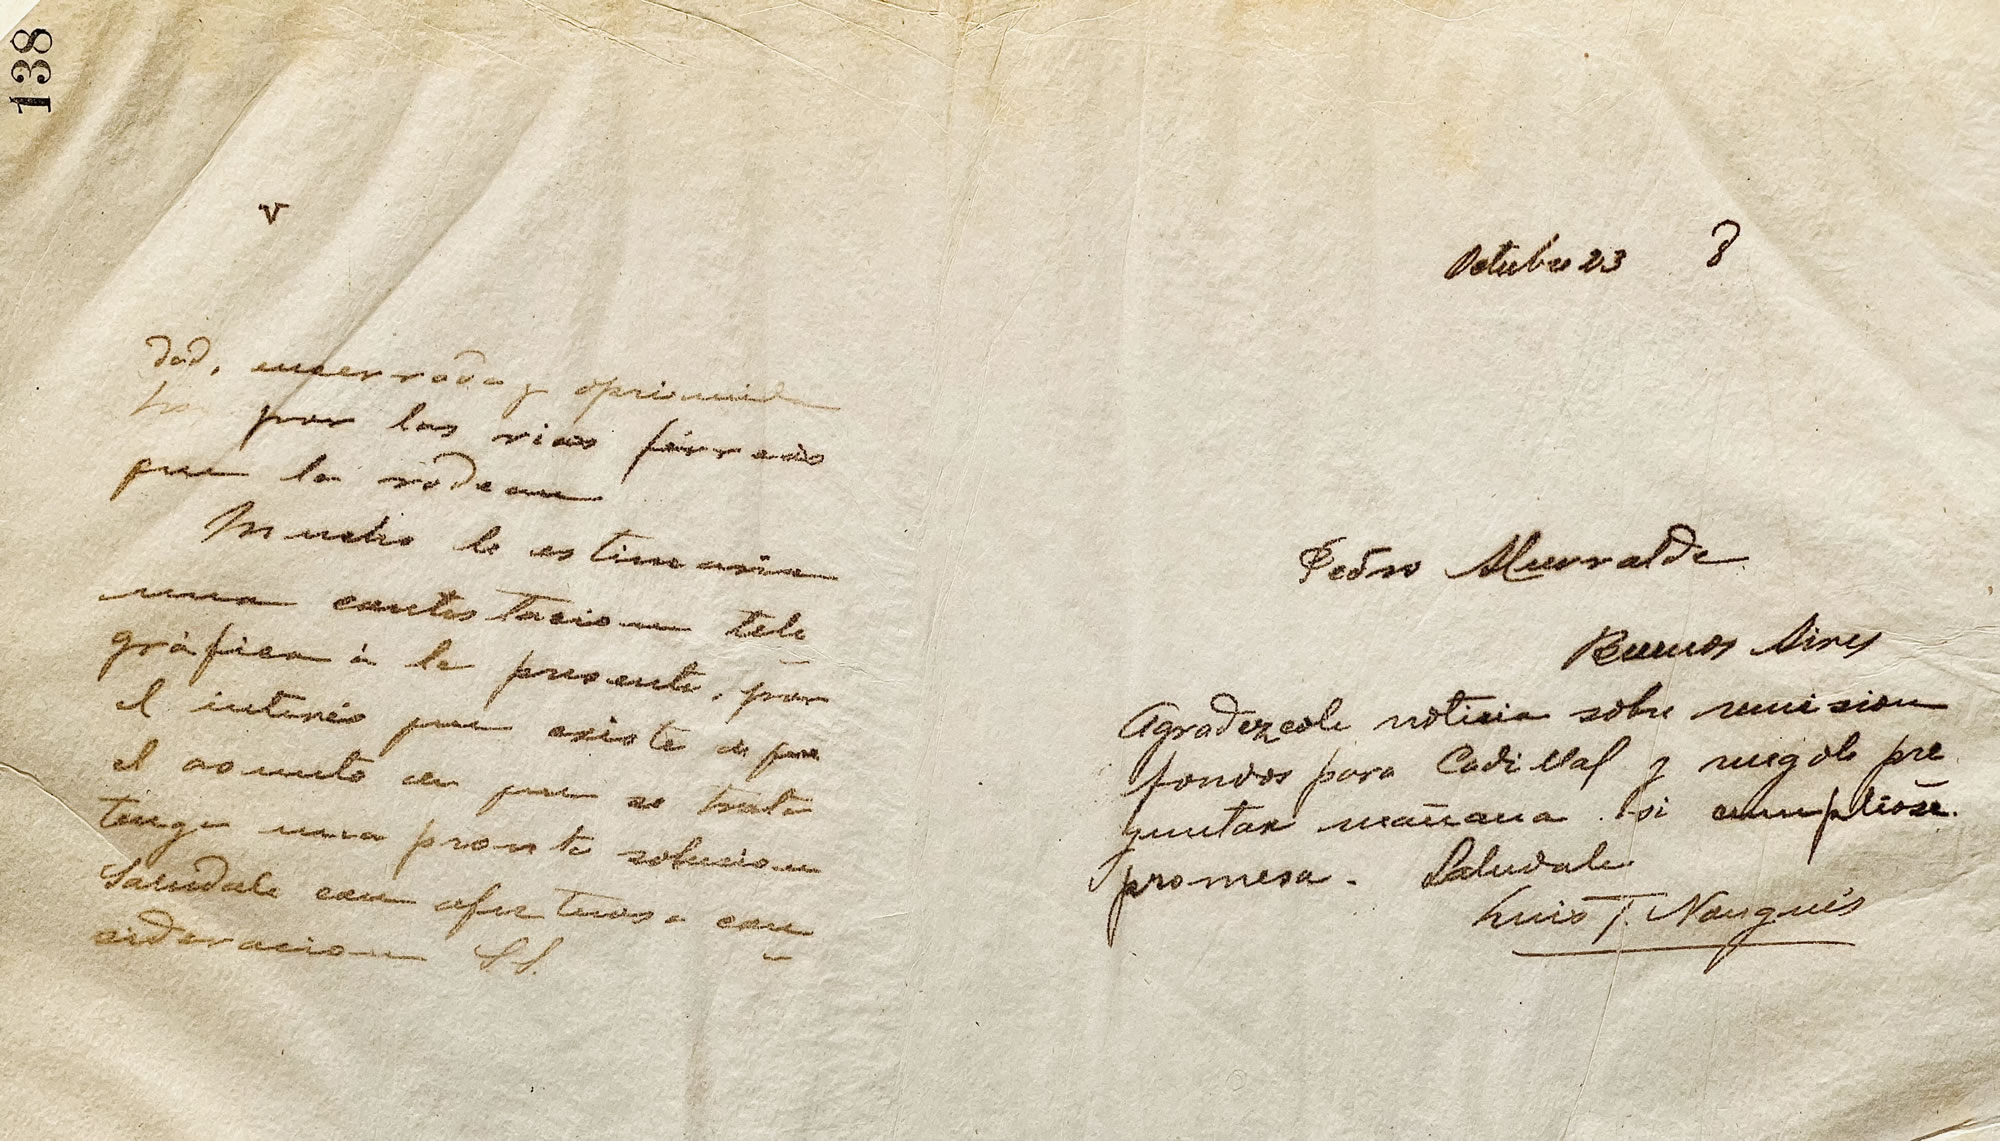 138
v
dad, encerrada y oprimida
por las vias férreas
que la rodean
Mucho le estimaria
una contestacion tele
gráfica á la presente, por
el interés que existe de que
el asunto de que se trata
tenga una pronta solucion
Saludale con afectuosa con
sideracion S.S.
Octubre 23 8
Pedro Alurralde
Buenos Aires
Agradezcole noticia sobre remision
fondos para Cadillal y ruegole pre
guntar mañana si cumplióse
promesa. Saludale
Luis F. Nougués